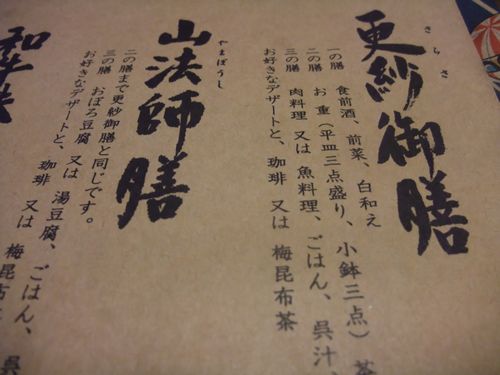 さらさ
更紗御膳
一の膳 食前酒、前菜、白和え
二の膳 お重（平皿三点盛り、小鉢三点）茶
三の膳 肉料理 又は 魚料理、ごはん、呉汁、
お好きなデザートと、珈琲 又は 梅昆布茶
やまぼうし
山法師膳
二の膳まで更紗御膳と同じです。
三の膳 おぼろ豆腐 又は 湯豆腐、ごはん、呉
お好きなデザートと、珈琲 又は 梅昆布